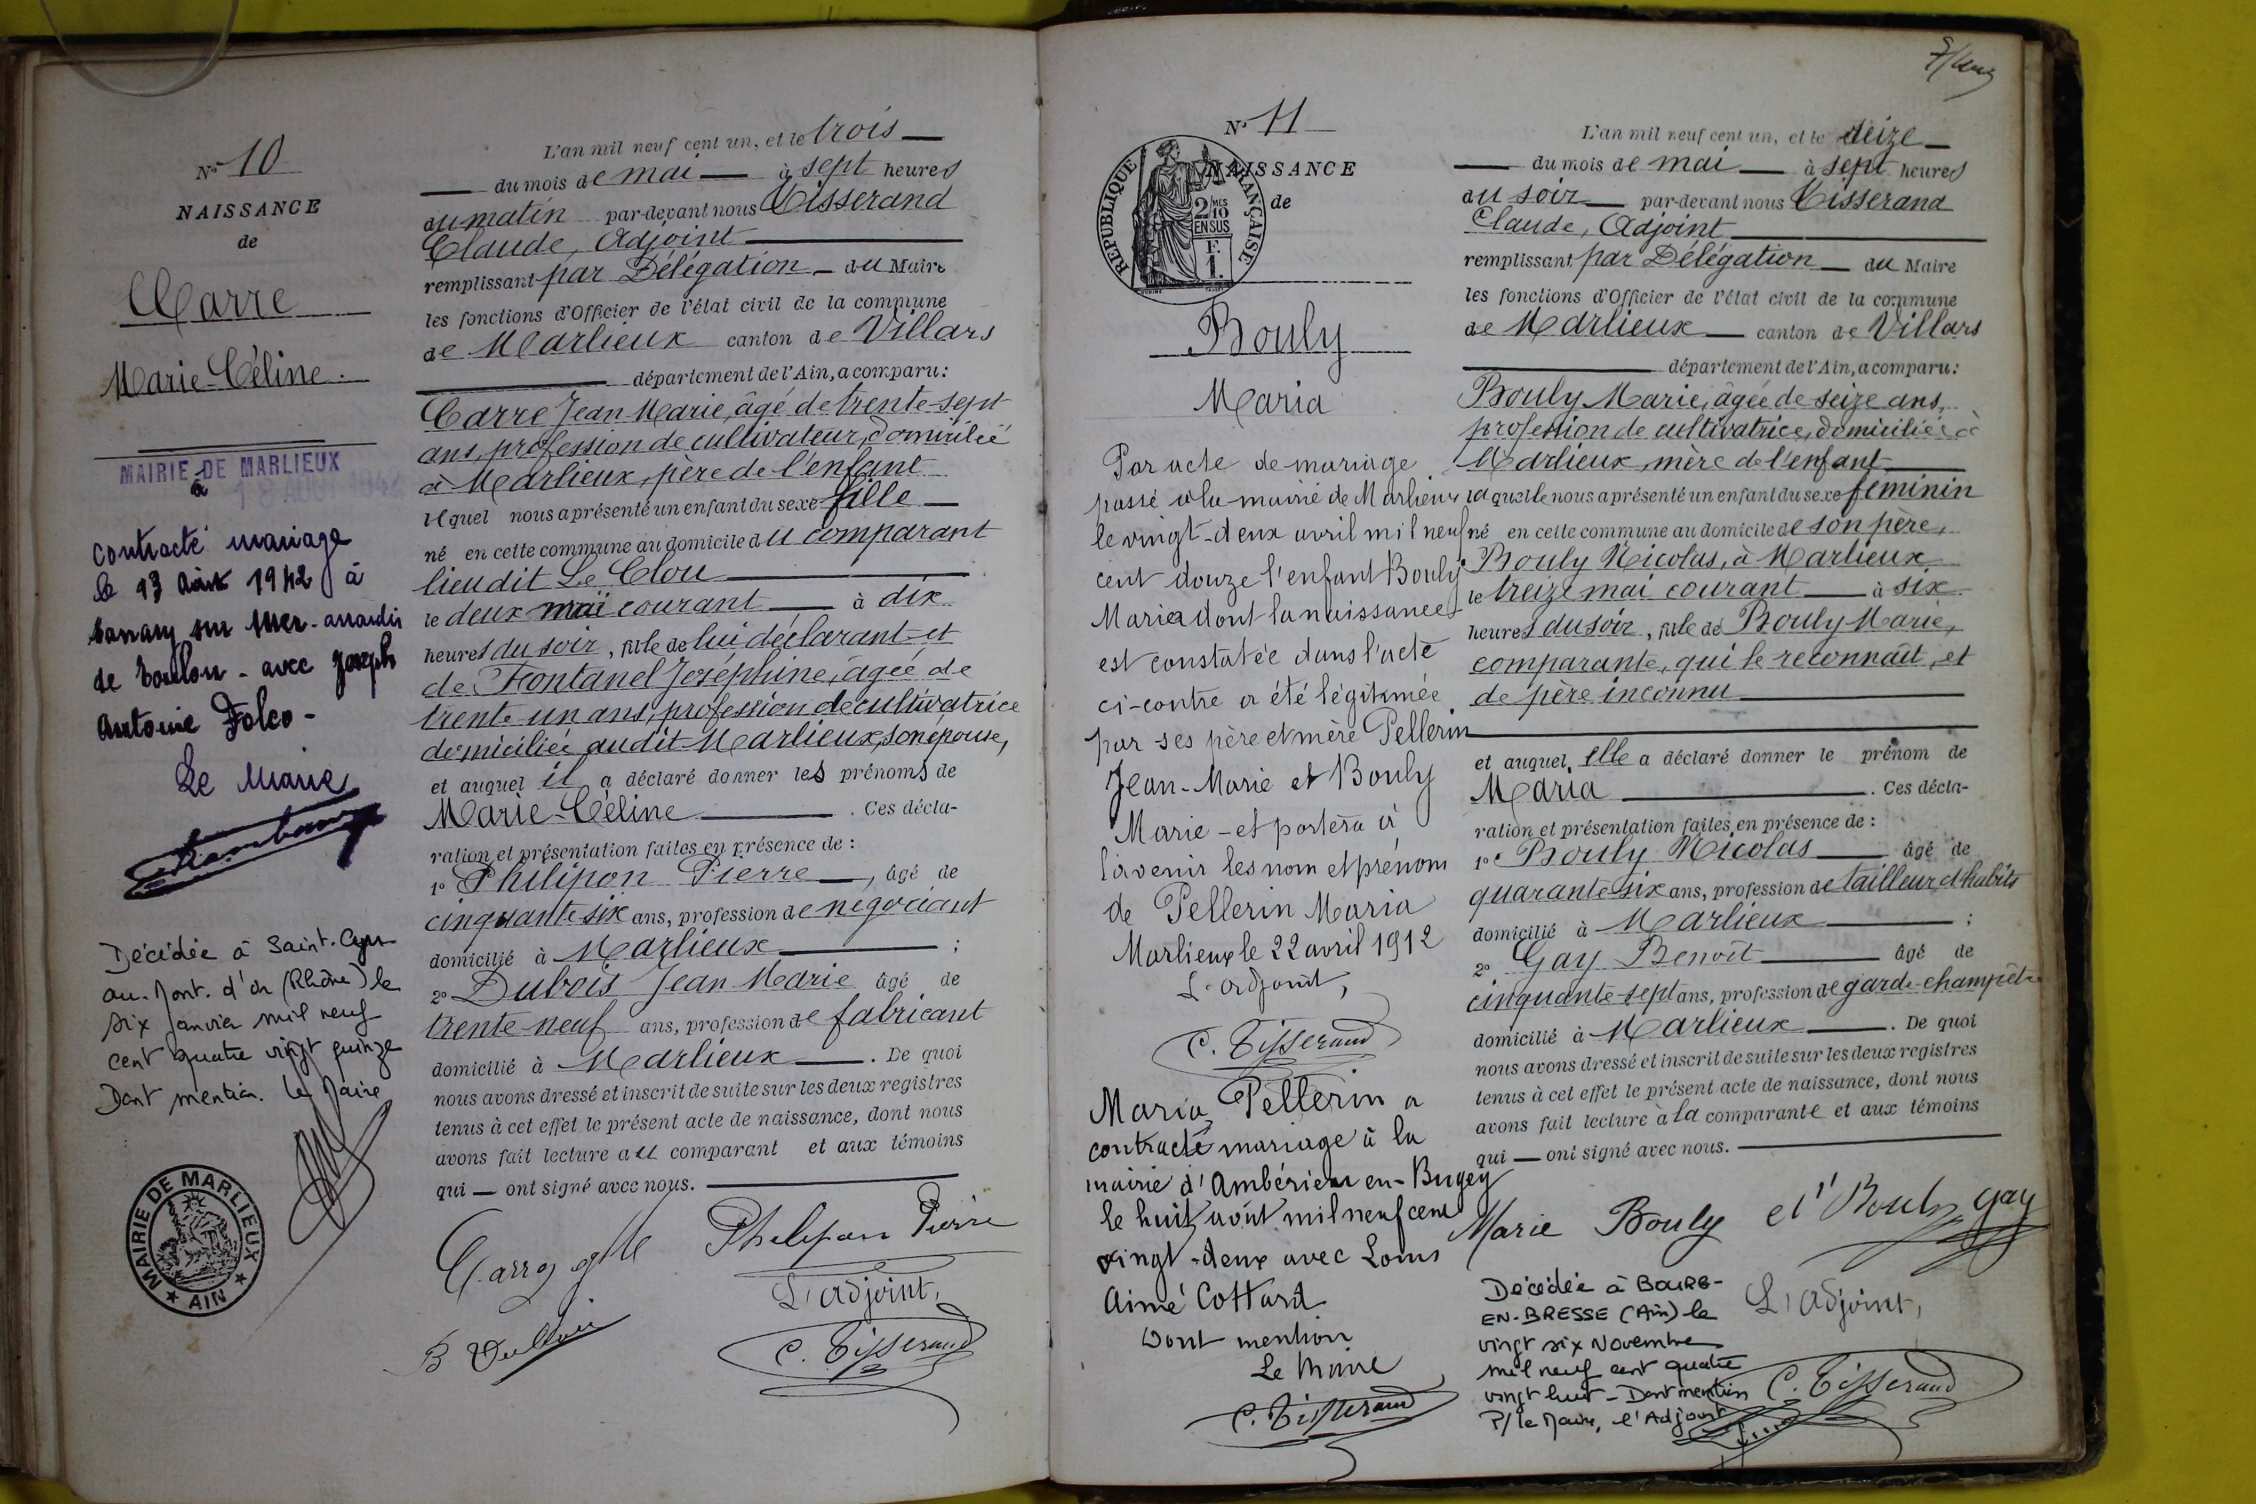 N° 10
NAISSANCE
de
Carre
Marie-Céline.
MAIRIE DE MARLIEUX
a
contracté mariage
le 13 Août 1942 à
Sanary sur Mer - arrondis
de Toulon - avec Joseph
Antoine Folco -
Le Maire
Décédée à Saint-Cyr
au. Mont. d'or (Rhône) le
six janvier mil neuf
cent quatre vingt quinze
Dont mention. Le Maire
MAIRIE DE MARLIEUX
★ AIN ★
L'an mil neuf cent un, et le trois
du mois de mai à sept heures
du matin par-devant nous Tisserand
Claude, Adjoint
remplissant par Délégation du Maire
les fonctions d'Officier de l'état civil de la commune
de Marlieux canton de Villars
département de l'Ain, a comparu:
Carre Jean Marie, âgé de trente-sept
ans, profession de cultivateur, domicilié
à Marlieux, père de l'enfant
lequel nous a présenté un enfant du sexe fille
né en cette commune au domicile du comparant
lieu dit Le Clou
le deux mai courant à dix
heures du soir, fille de lui déclarant et
de Fontanel Joséphine, âgée de
trente un ans, profession de cultivatrice
domiciliée audit Marlieux, son épouse,
et auquel il a déclaré donner les prénoms de
Marie-Céline . Ces décla-
ration et présentation faites en présence de :
1° Philipon Pierre, âgé de
cinquante six ans, profession de négociant
domicilié à Marlieux ;
2° Dubois Jean Marie âgé de
trente-neuf ans, profession de fabricant
domicilié à Marlieux. De quoi
nous avons dressé et inscrit de suite sur les deux registres
tenus à cet effet le présent acte de naissance, dont nous
avons fait lecture au comparant et aux témoins
qui — ont signé avec nous.
Philipon Pierre
L'adjoint,
C. Tisserand
N° 11
NAISSANCE
de
RÉPUBLIQUE FRANÇAISE
2/10 MES
EN SUS
F.
1.
Bouly
Maria
Par acte de mariage
passé à la mairie de Marlieux
le vingt-deux avril mil neuf
cent douze l'enfant Bouly
Maria dont la naissance
est constatée dans l'acte
ci-contre a été légitimée
par ses père et mère Pellerin
Jean-Marie et Bouly
Marie - et portera à
l'avenir les nom et prénom
de Pellerin Maria
Marlieux le 22 avril 1912
L'adjoint,
C. Tisserand
Maria Pellerin a
contracté mariage à la
mairie d'Ambérieu en-Bugey
le huit août mil neuf cent
vingt-deux avec Louis
Aimé Cottard
Dont mention
Le Maire
C. Tisserand
L'an mil neuf cent un, et le treize
du mois de mai à sept heures
du soir par-devant nous Tisserand
Claude, Adjoint
remplissant par Délégation du Maire
les fonctions d'Officier de l'état civil de la commune
de Marlieux canton de Villars
département de l'Ain, a comparu:
Bouly Marie, âgée de seize ans,
profession de cultivatrice, domiciliée à
Marlieux, mère de l'enfant
laquelle nous a présenté un enfant du sexe féminin
né en cette commune au domicile de son père,
Bouly Nicolas, à Marlieux
le treize mai courant à six
heures du soir, fille de Bouly Marie,
comparante, qui le reconnaît, et
de père inconnu
et auquel elle a déclaré donner le prénom de
Maria . Ces décla-
ration et présentation faites en présence de :
1° Bouly Nicolas âgé de
quarante six ans, profession de tailleur d'habits
domicilié à Marlieux ;
2° Gay Benoît âgé de
cinquante-sept ans, profession de garde-champêtre
domicilié à Marlieux. De quoi
nous avons dressé et inscrit de suite sur les deux registres
tenus à cet effet le présent acte de naissance, dont nous
avons fait lecture à la comparante et aux témoins
qui — ont signé avec nous.
Marie Bouly Bouly Gay
L'adjoint,
C. Tisserand
Décédée à BOURG-
EN-BRESSE (Ain) le
vingt six Novembre
mil neuf cent quatre
vingt huit - Dont mention
P/ le Maire, l'Adjoint